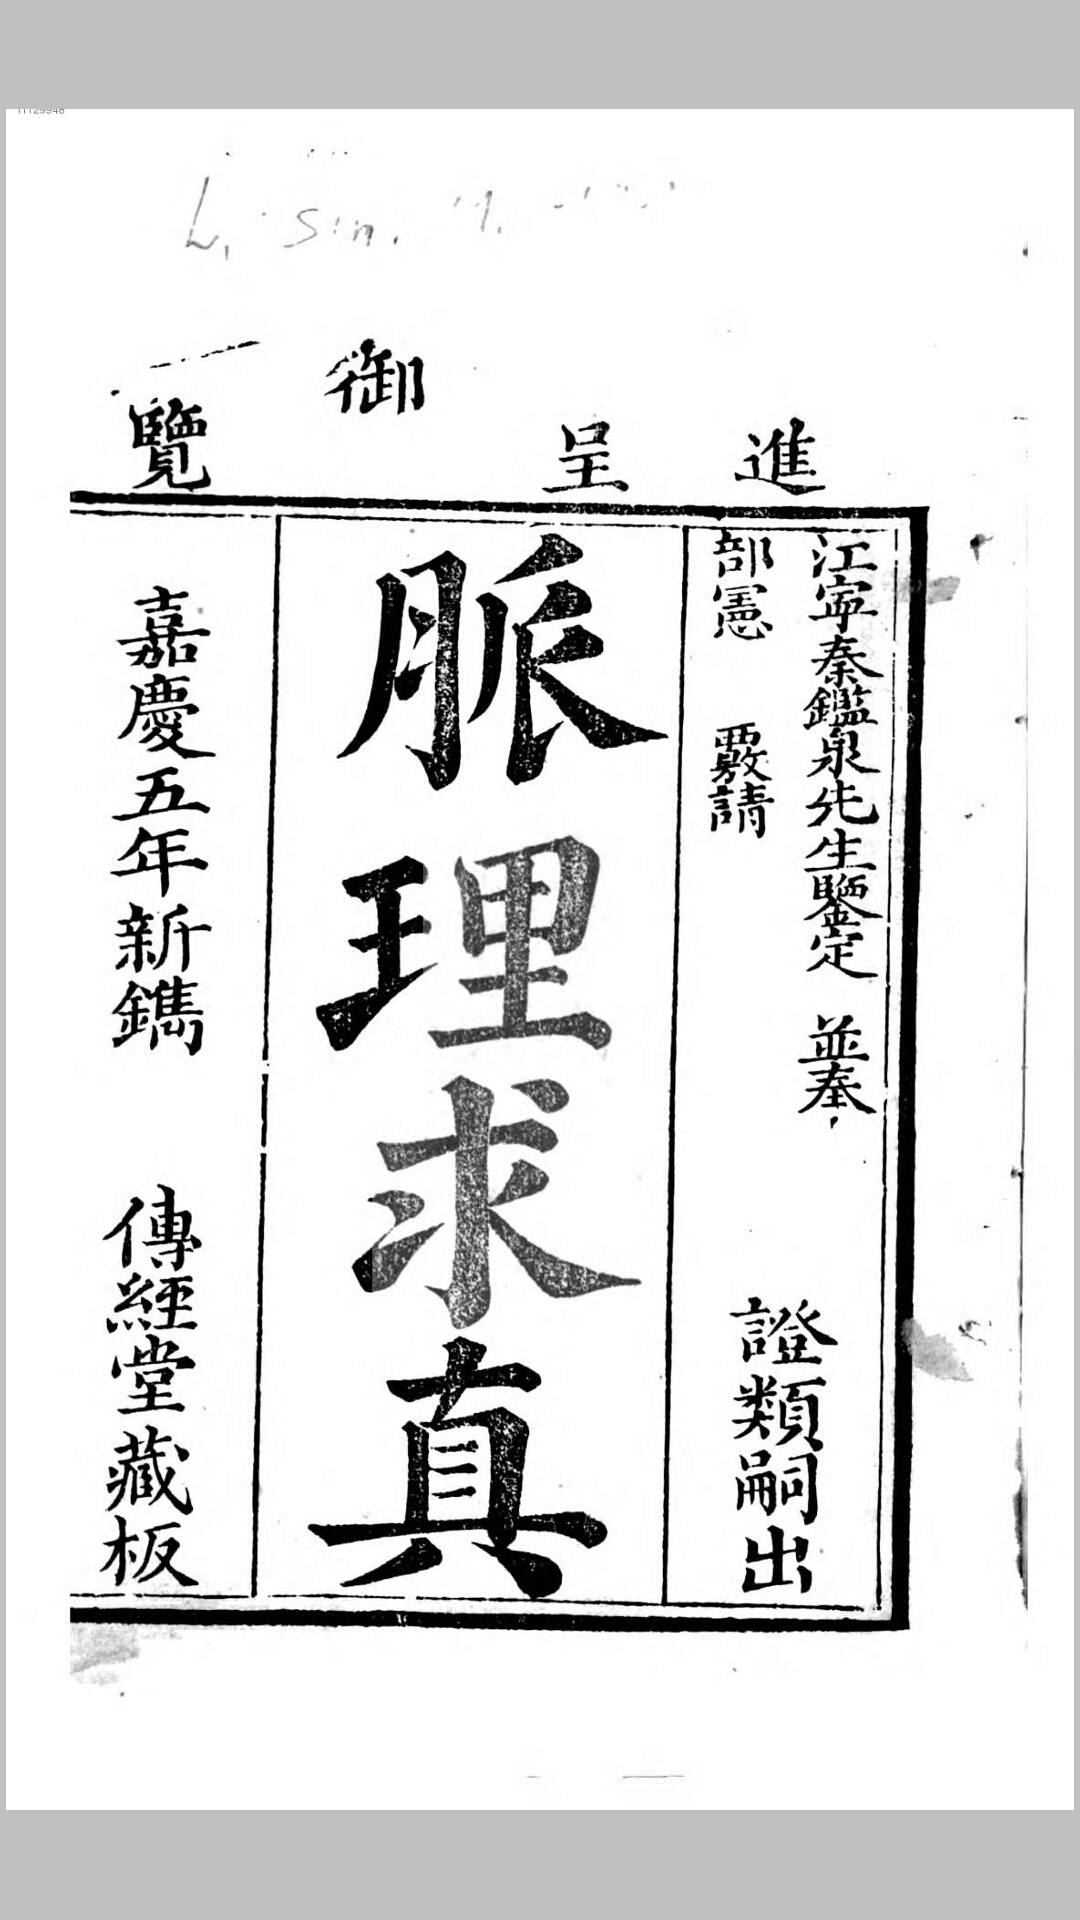 11129948
L. Sin.
進呈御覽
江寧秦鑑泉先生鑒定 並奉
部憲 覈請
證類嗣出
脈理求真
嘉慶五年新鐫 傳經堂藏板